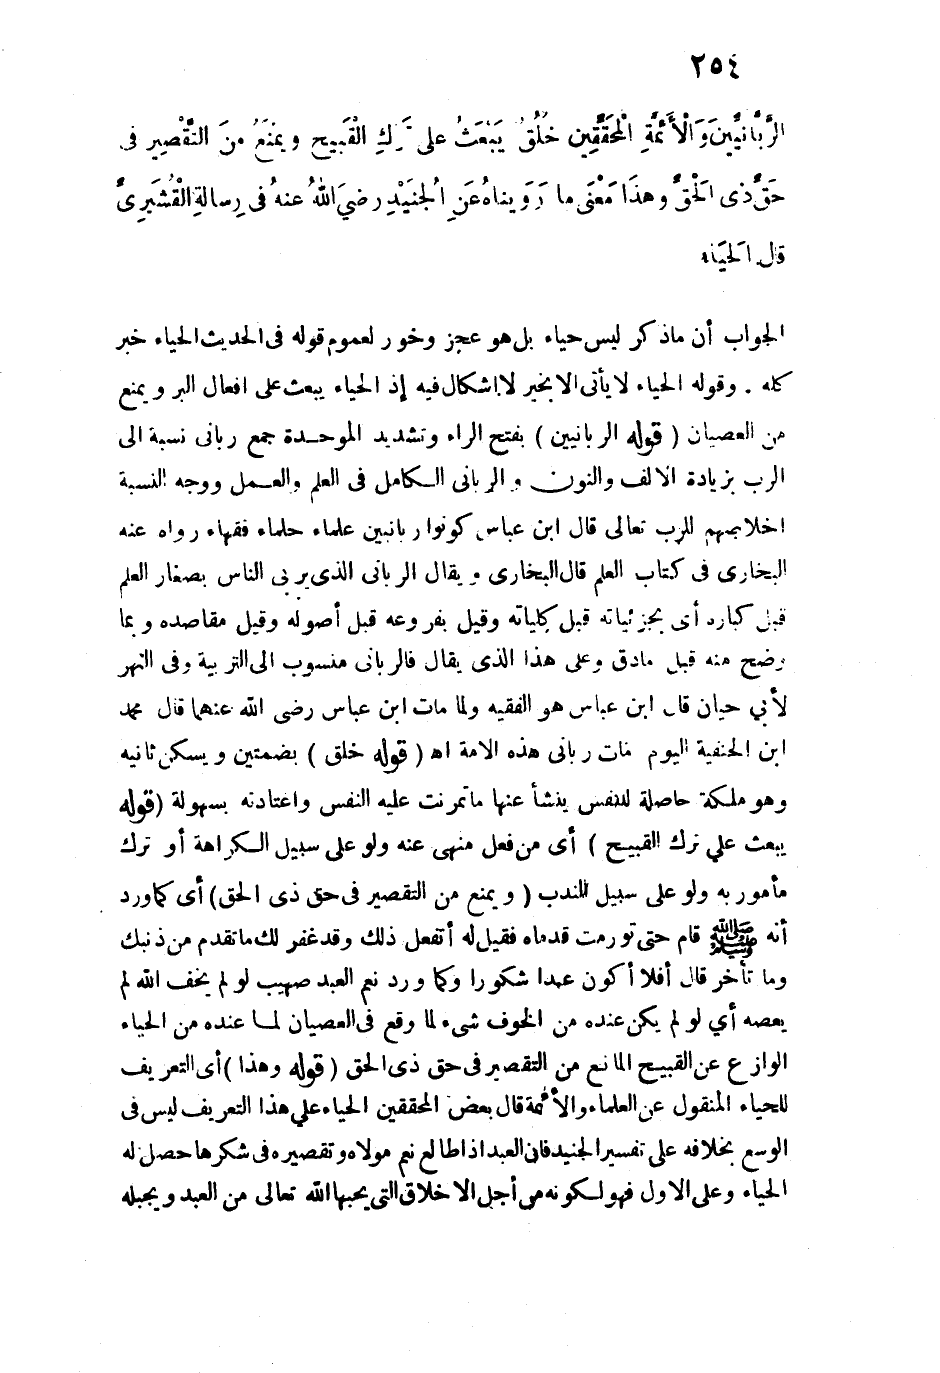 ٢٥٤
الرَّبَّانِيِّينَ وَالْأَئِمَّةِ الْمُحَقِّقِينَ خُلُقٌ يَبْعَثُ على تَرْكِ الْقَبِيحِ ويَمْنَعُ منَ التَّقْصِيرِ فى
حَقِّ ذى الْحَقِّ وهذَا مَعْنَى ما رَوَيناهُ عَنِ الْجُنَيْدِ رضيَ اللهُ عنهُ فى رسالةِ الْقُشَيْرِيِّ
قال الحَيَاء
الجواب أن ماذكر ليس حياء بل هو عجز وخور لعموم قوله فى الحديث الحياء خير
كله . وقوله الحياء لا يأتى الا بخير لا اشكال فيه إذ الحياء يبعث على افعال البر ويمنع
من العصيان ( قوله الربانيين ) بفتح الراء وتشديد الموحدة جمع ربانى نسبة الى
الرب بزيادة الالف والنون والربانى الكامل فى العلم والعمل ووجه النسبة
اخلاصهم للرب تعالى قال ابن عباس كونوا ربانيين علماء حلماء فقهاء رواه عنه
البخارى فى كتاب العلم قال البخارى ويقال الربانى الذى يربى الناس بصغار العلم
قبل كباره أى بجزئياته قبل كلياته وقيل بفروعه قبل أصوله وقيل مقاصده وبما
وضح منه قبل مادق وعلى هذا الذى يقال فالربانى منسوب الى التربية وفى النهر
لأبي حيان قال ابن عباس هو الفقيه ولما مات ابن عباس رضى الله عنهما قال محمد
ابن الحنفية اليوم مات ربانى هذه الامة اه ( قوله خلق ) بضمتين ويسكن ثانيه
وهو ملكة حاصلة للنفس ينشأ عنها ماتمرنت عليه النفس واعتادته بسهولة (قوله
يبعث علي ترك القبيح ) أى من فعل منهى عنه ولو على سبيل الكراهة أو ترك
مأمور به ولو على سبيل الندب ( ويمنع من التقصير فى حق ذى الحق) أى كماورد
أنه ﷺ قام حتى تورمت قدماه فقيل له أتفعل ذلك وقد غفر لك ماتقدم من ذنبك
وما تأخر قال أفلا أكون عبدا شكورا وكما ورد نعم العبد صهيب لو لم يخف الله لم
يعصه أي لو لم يكن عنده من الخوف شىء لما وقع فى العصيان لما عنده من الحياء
الوازع عن القبيح المانع من التقصير فى حق ذى الحق ( قوله وهذا ) أى التعريف
للحياء المنقول عن العلماء والأئمة قال بعض المحققين الحياء علي هذا التعريف ليس فى
الوسع بخلافه على تفسير الجنيد فان العبد اذا طالع نعم مولاه وتقصيره فى شكرها حصل له
الحياء وعلى الاول فهو لكونه من أجل الاخلاق التى يحبها الله تعالى من العبد ويجبله